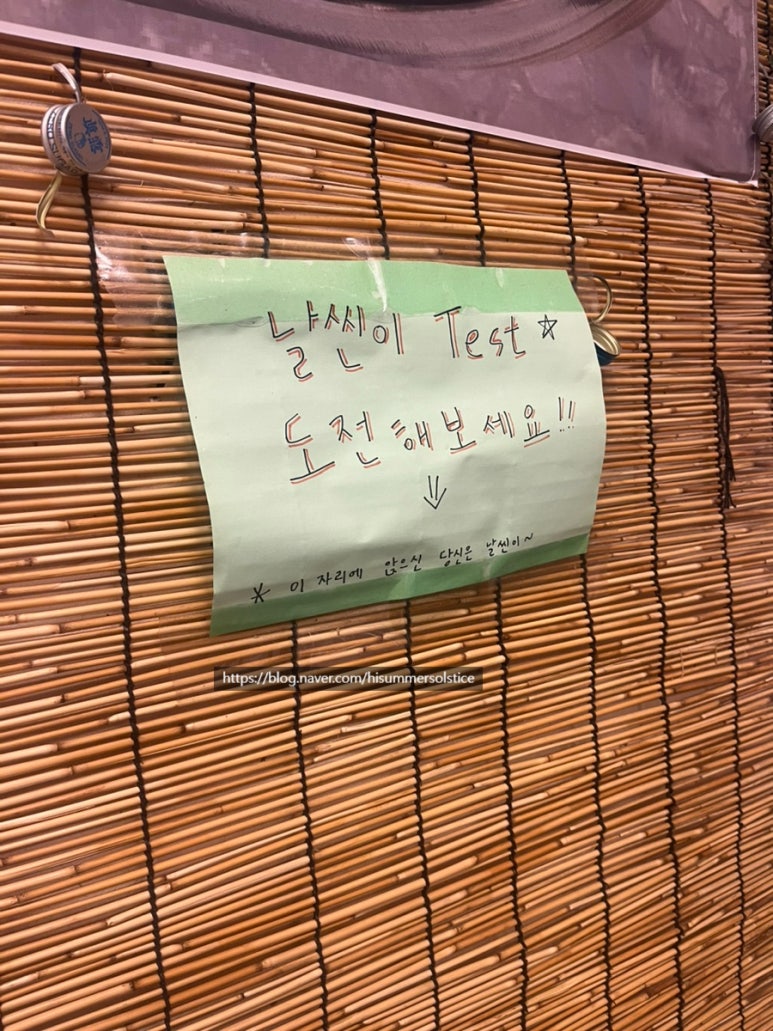 날씬이 Test ☆
도전해보세요!!
↓
* 이 자리에 앉으신 당신은 날씬이~
https://blog.naver.com/hisummersolstice